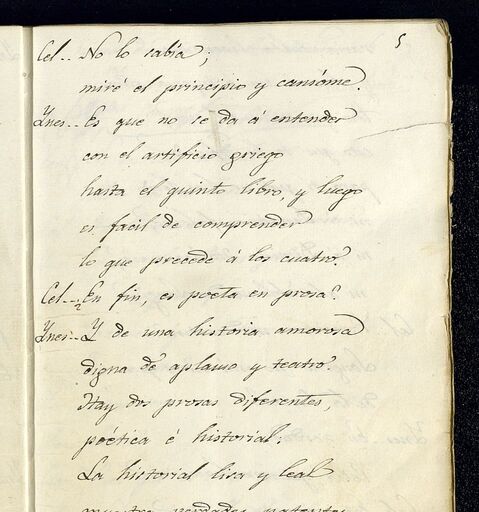 5
Cel.. No lo sabía;
miré el principio y cansóme.
Ynes.. Es que no se da á entender
con el artificio griego
hasta el quinto libro, y luego
es facil de comprender
lo que precede á los cuatro.
Cel... En fin, es poeta en prosa?
Ynes.. Y de una historia amorosa
digna de aplauso y teatro.
Hay dos prosas diferentes,
poética é historial;
La historial lisa y leal
muestra verdades patentes